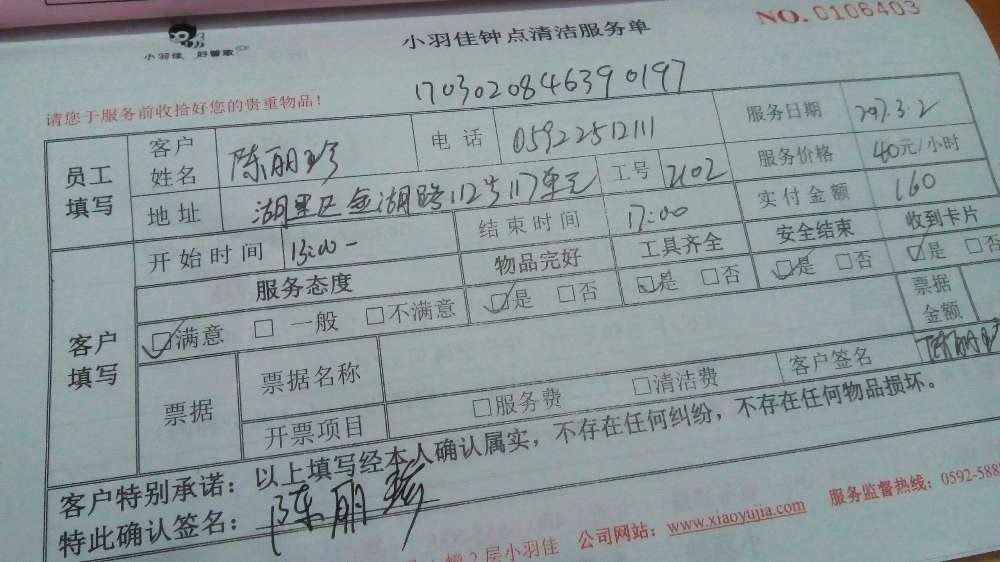 小羽佳 好管家
小羽佳钟点清洁服务单
NO.0106403
1703020846390197
请您于服务前收拾好您的贵重物品！
员工填写 客户姓名 陈丽珍 电话 05922512111 服务日期 2017.3.2
地址 湖里区金湖路112号117单元 工号 2102 服务价格 40元/小时
开始时间 13:00- 结束时间 17:00 实付金额 160
客户填写 服务态度 物品完好 工具齐全 安全结束 收到卡片
☑满意 □一般 □不满意 ☑是 □否 ☑是 □否 ☑是 □否 ☑是 □否
票据 票据名称 票据金额
开票项目 □服务费 □清洁费 客户签名 陈丽珍
客户特别承诺：以上填写经本人确认属实，不存在任何纠纷，不存在任何物品损坏。
特此确认签名：陈丽珍
2层小羽佳 公司网站：www.xiaoyujia.com 服务监督热线：0592-588